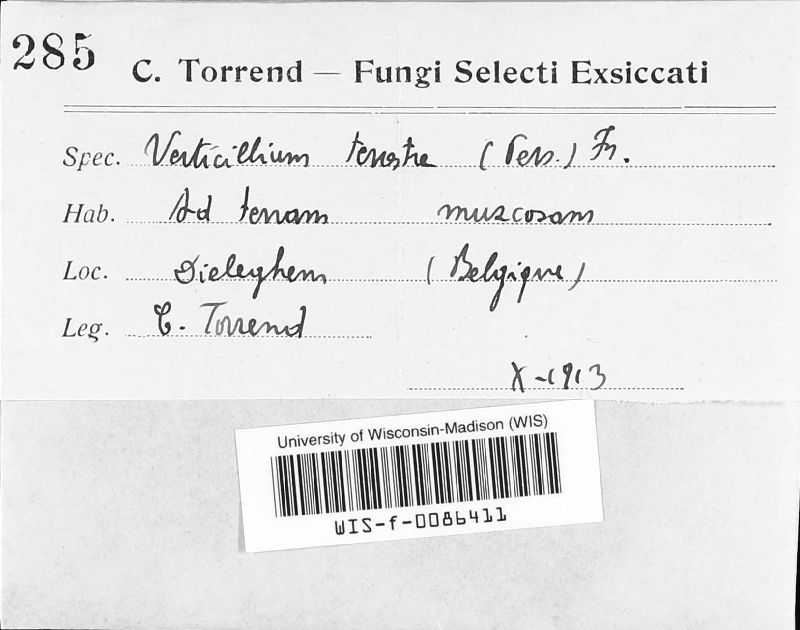 285
C. Torrend — Fungi Selecti Exsiccati
Spec. Verticillium terrestre (Pers.) Fr.
Hab. Ad terram muscosam
Loc. Dieleghem (Belgique)
Leg. C. Torrend
X-1913
University of Wisconsin-Madison (WIS)
WIS-f-0086411